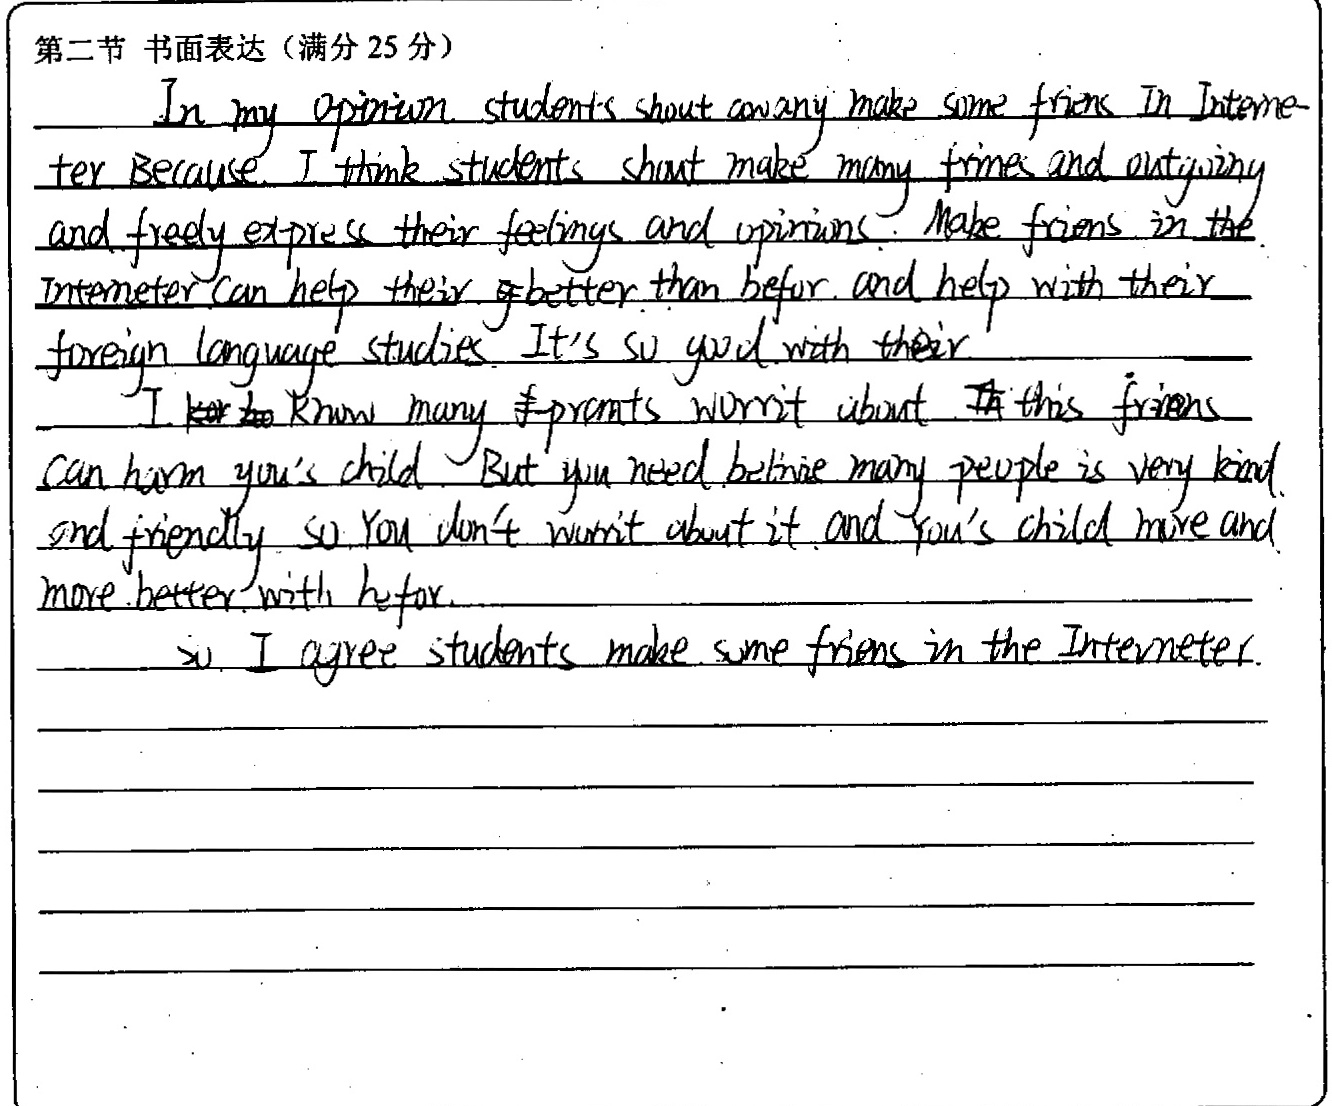 第二节 书面表达（满分 25 分）
In my opinion students shout many make some friens In Interne-
ter Because I think students shout make many frines and outgoing
and freely express their feelings and opinions. Make friens in the
Interneter can help their better than befor and help with their
foreign language studies It's so good with their
I know many pramts worrit about this friens
can harm you's child. But you need belivie many people is very kind
and friendly so You don't worrit about it and You's child more and
more better with befor.
so I agree students make some friens in the Interneter.